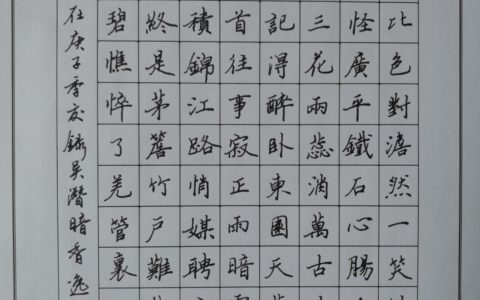 比色對澹然一笑
怪廣平鐵石心腸
三花兩蕊消萬古
記得醉卧東園天
首往事寂正雨暗
積錦江路悄媒聘
終是茅簷竹戶難
碧憔悴了羌管裏
在庚子季夏錄吳潛暗香逸